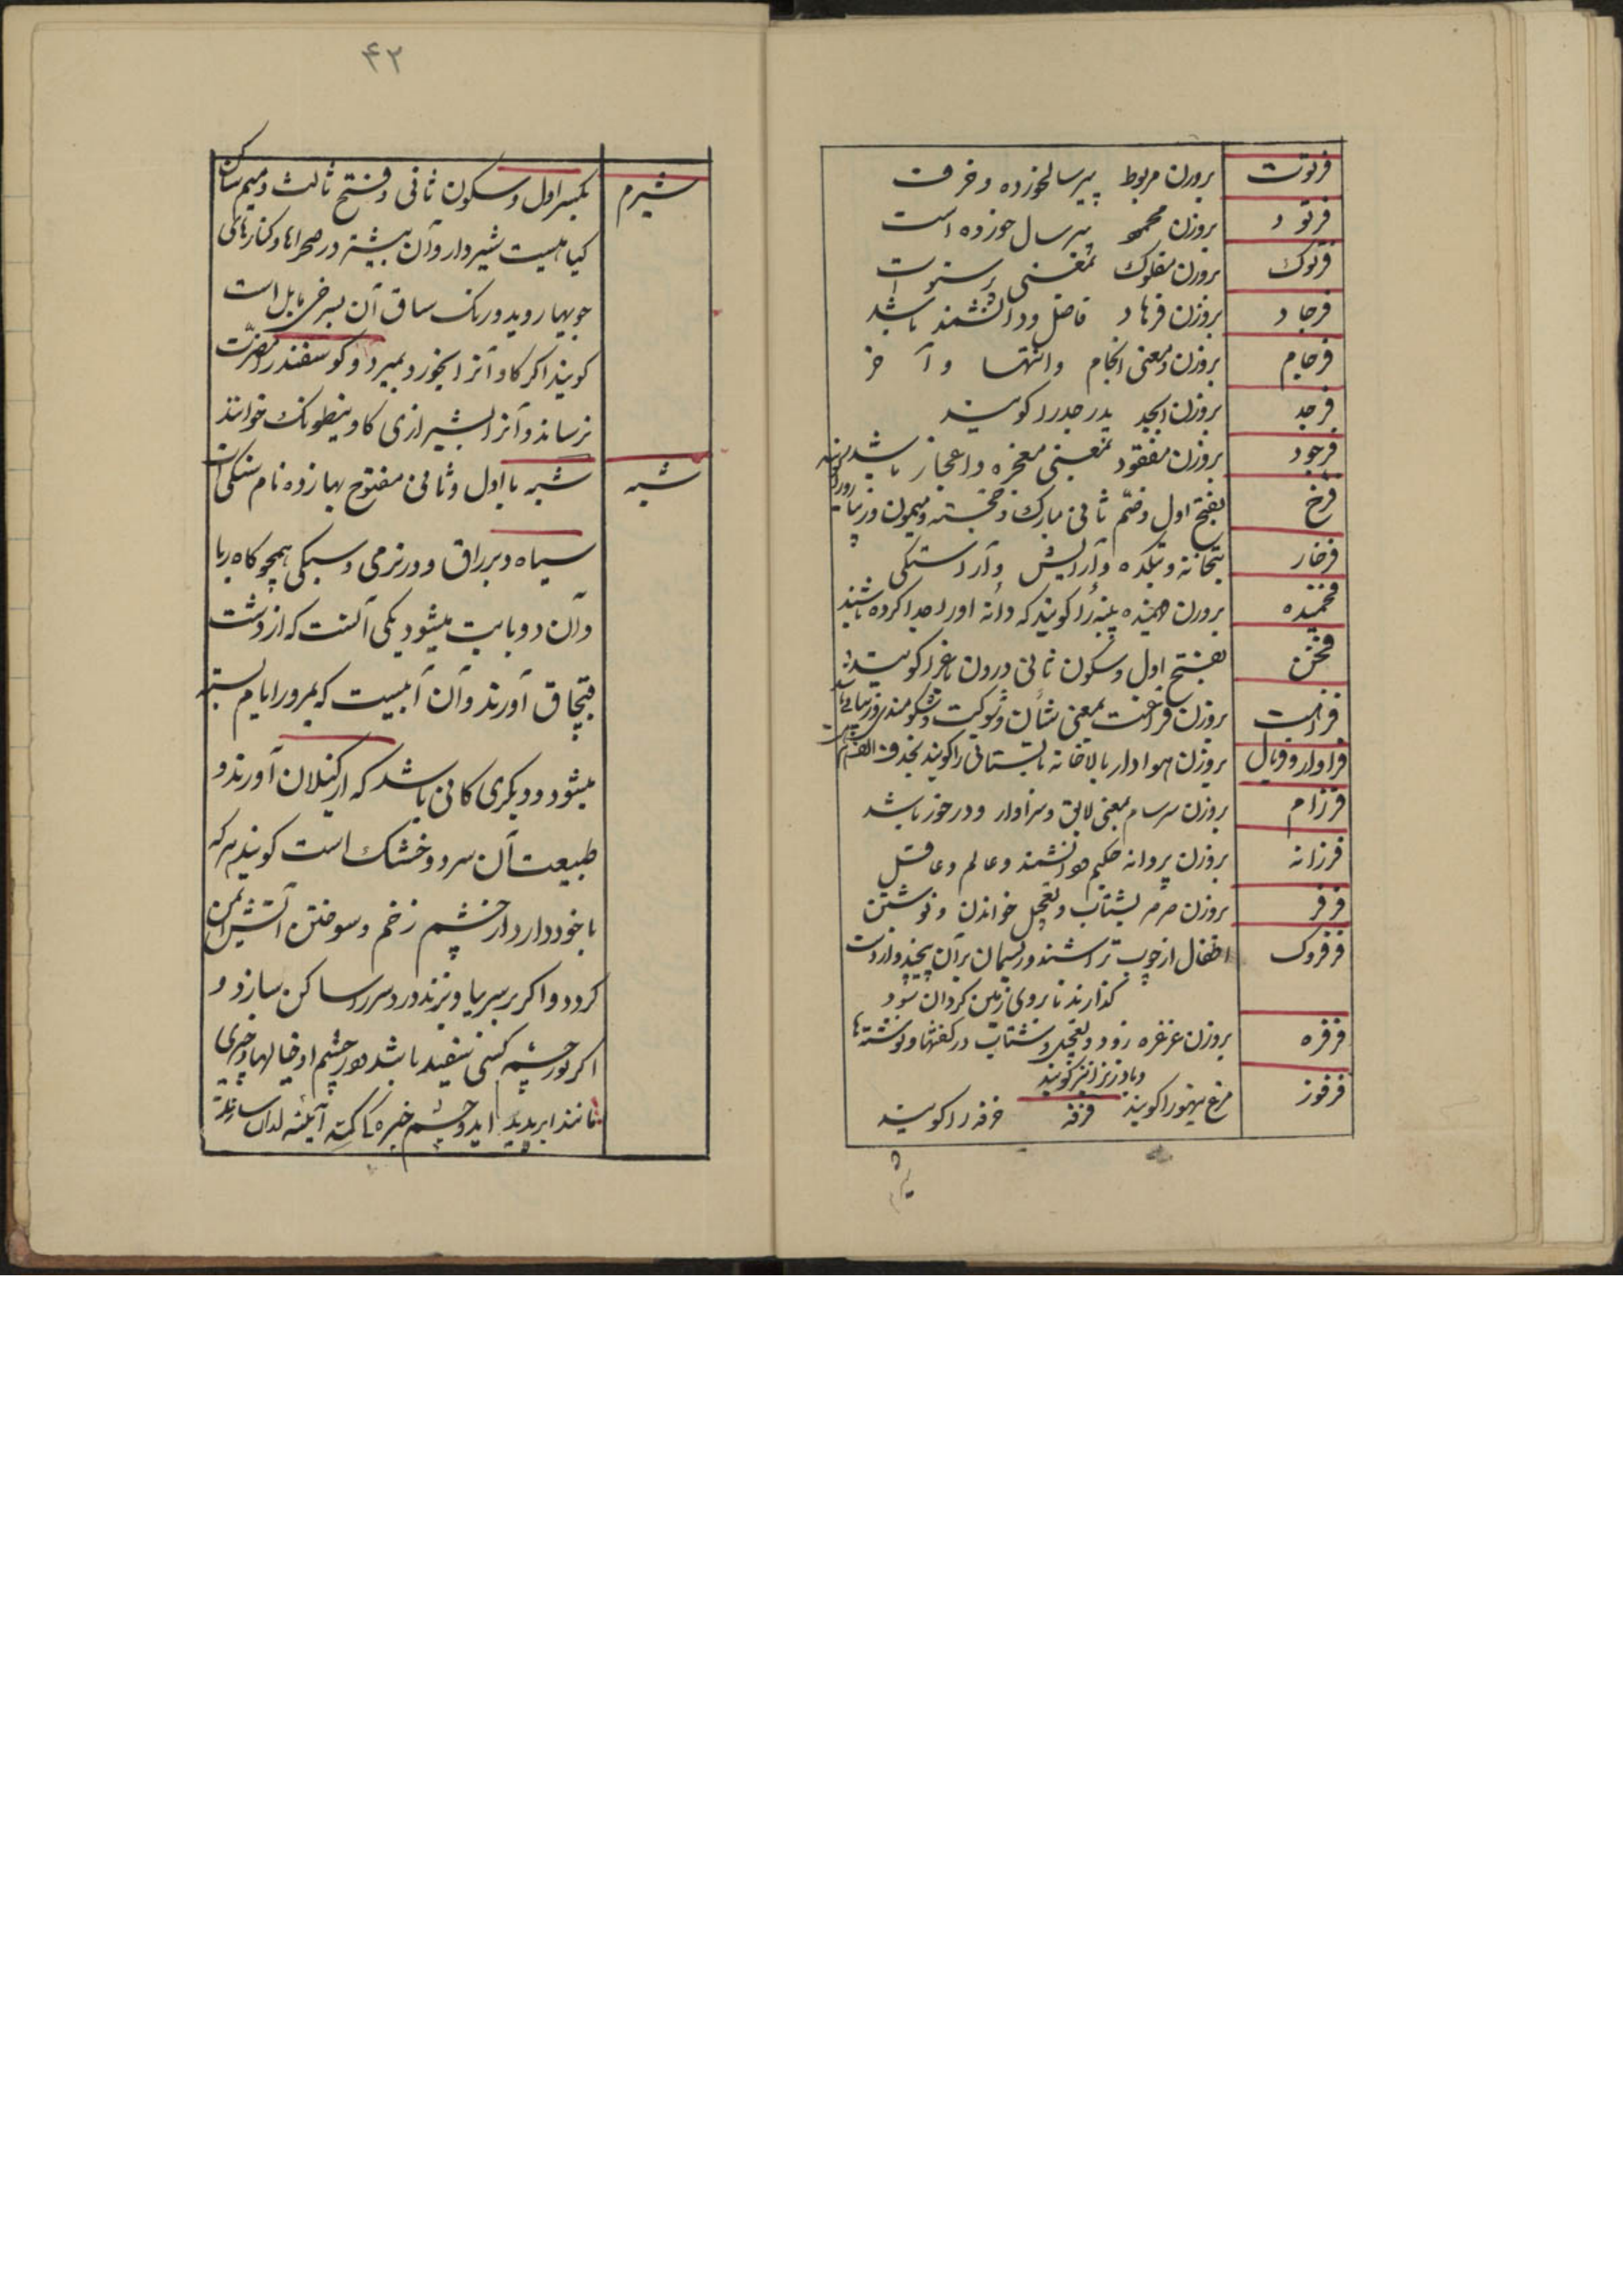 فرتوت بروزن مربوط پیر سالخورده و خرف
فرتود بروزن محمود پیر سال خورده است
فرتوک بروزن مفلوک بمعنی پرستو است
فرجاد بروزن فرهاد فاضل و دانشمند باشد
فرجام بروزن و معنی انجام و انتها و آخر
فرجد بروزن ابجد پدر جد را کویند
فرجود بروزن مفقود بمعنی معجزه و اعجاز باشد
فرخ بفتح اول و ضم ثانی مبارک و خجسته و میمون و زیبا
فرخار بتخانه و بتکده و آرایش و آراستکی
فخمیده بروزن فهمیده پنبه را کویند که دانه او را جدا کرده باشند
فخن بفتح اول و سکون ثانی درون باغ را کویند
فراهت بروزن فراغت بمعنی شان و شوکت و شکومندی و زیبائی
فراوار و فروال بروزن هوادار بالاخانه تابستانی را کویند بحذف الف
فرزام بروزن سرسام بمعنی لایق و سزاوار و در خور باشد
فرزانه بروزن پروانه حکیم و دانشمند و عالم و عاقل
فرفر بروزن صرصر بشتاب و تعجیل خواندن و نوشتن
فرفروک اطفال از چوب تراشند و ریسمان بر آن پیچند و از دست
کذارند تا بروی زمین کردان شود
فرفره بروزن غرغره زود و تعجیل و شتاب در کفتنها و نوشتنها
و باد زنرا نیز کویند
فرفور مرغ تیهو را کویند فرفه خرفه را کویند
شیرم
۴۲
شیرم بکسر اول و سکون ثانی و فتح ثالث و میم ساکن
کیاهیست شیردار و آن بیشتر در صحراها و کنارهای
جویها روید و رنک ساق آن بسرخی مایل است
کویند اکر کاو آنرا بخورد بمیرد و کوسفند را مضرت
نرساند و آنرا بشیرازی کاو ینطونک خوانند
شبه شبه با اول و ثانی مفتوح بها زده نام سنکی است
سیاه و براق و در نرمی و سبکی همچو کاه ربا
و آن دو بابت میشود یکی آنست که از دشت
قبچاق آورند و آن آبیست که بمرور ایام بسته
میشود و دیکری کانی باشد که از کیلان آورند و
طبیعت آن سرد و خشک است کویند هر که
با خود دارد از چشم زخم و سوختن آتش ایمن
کردد و اکر بر سر بیاویزند درد سر را ساکن سازد و
اکر در چشم کسی سفید باشد و در چشم او خیالها و چیزی
مانند ابر پدید آید و چشم خیره باکمته آینه از آن سازند